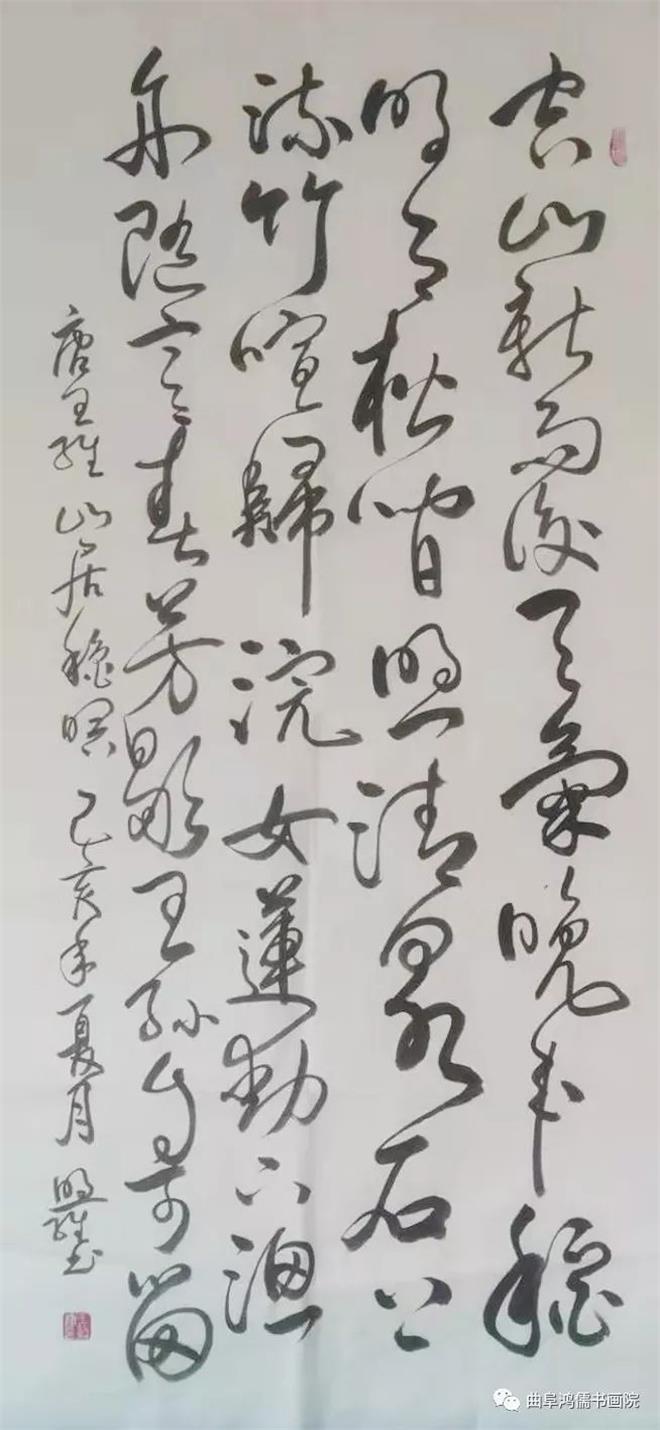 空山新雨後天氣晚来穐
明月松間照清泉石上
流竹喧歸浣女蓮動下漁
舟随意春芳歇王孫自可留
唐王維山居穐暝 己亥年夏月 明維书
曲阜鸿儒书画院